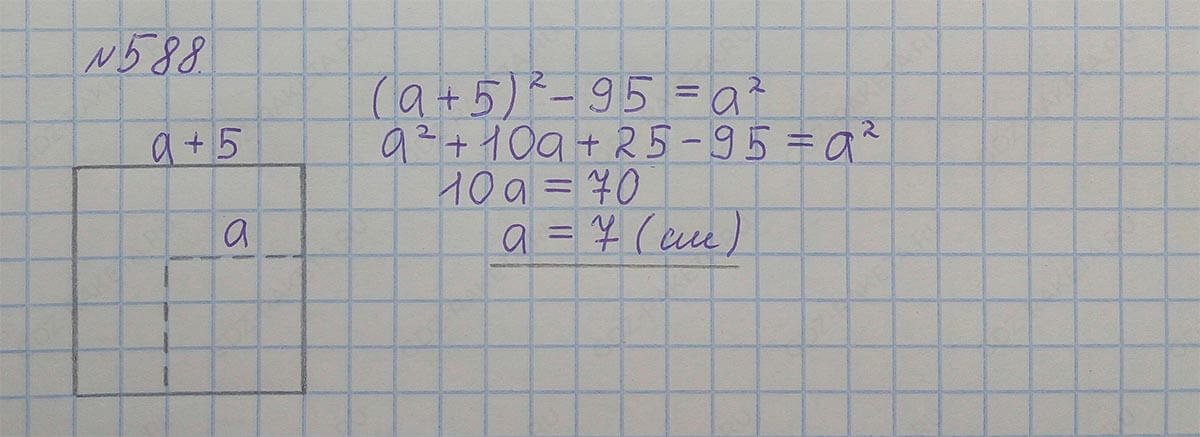 №588.
(a+5)² - 95 = a²
a+5
a² + 10a + 25 - 95 = a²
10a = 70
a
a = 7 (см)